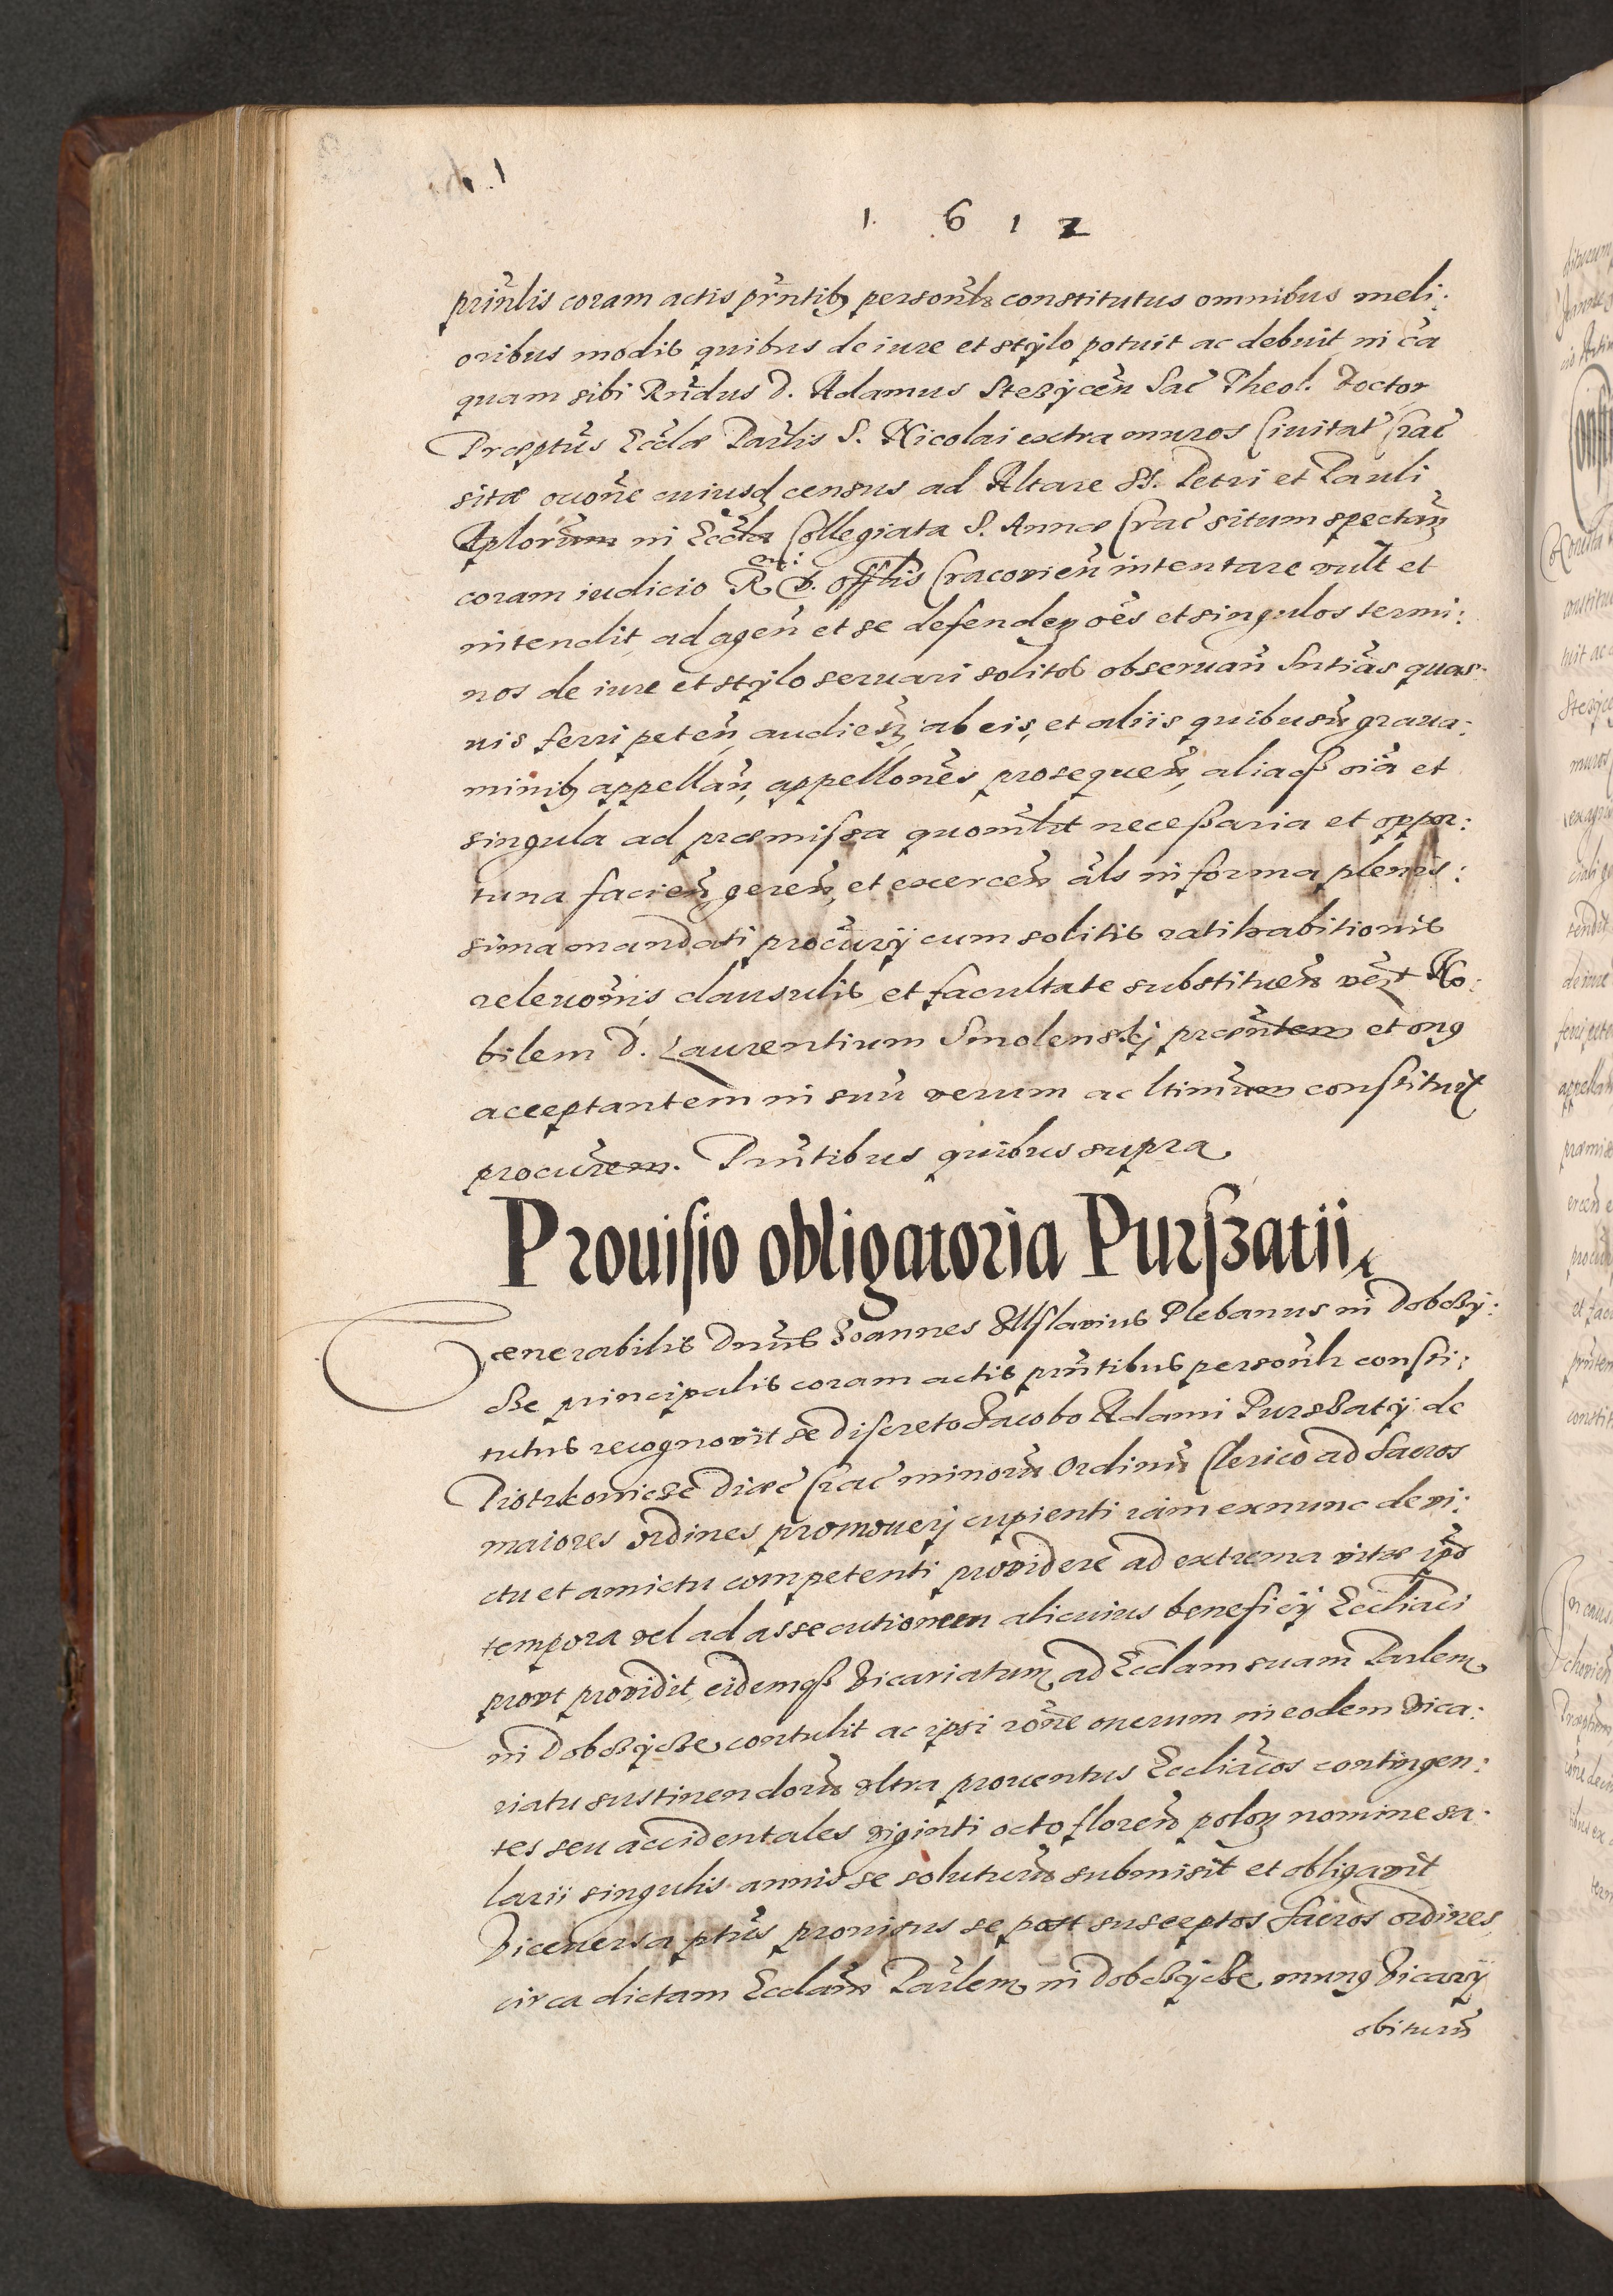 1 6 1 2
prinlis coram actis prntibȝ personlr constitutus omnibus meli:
oribus modis quibus de iure et stÿlo potuit ac debuit in cā
quam sibi Rndus D. Adamus Steżÿcen Sac Theol. Doctor
Præptus Eccłæ Parlis S. Nicolai extra muros Ciuitat Crac
sitæ rõne cuiusd census ad Altare SS. Petri et Pauli
Aplorum in Eccła Collegiata S. Annæ Crac situm spectan
coram iudicio Rmi D. Offtis Cracovien intentare vult et
intendit, ad agen et se defenden oēs et singulos termi:
nos de iure et stÿlo seruari solitos obseruan Sntias quas:
uis ferri peten, audien, ab eis, et aliis quibusũ graua:
minibȝ appellan, appellones prosequen, aliaqß oīa et
singula ad præmissa quomlbt necessaria et oppor:
tuna facien, geren, et exercen als in forma plenis:
sima mandati procurÿ cum solitis ratihabitionis
relevonis, clausulis et facultate substituen vert No:
bilem D. Laurentium Smolenskÿ præntem et onȝ
acceptantem in suũ verum ac ltimum constituit
procurem. Prntibus quibus supra
Prouisio obligatoria Purszatii
Venerabilis Dnus Joannes Plebanus in Dobczÿ:
cze principalis coram actis prntibus personlr consti:
tutus recognovit se Discreto Jacobo Adami Purszatÿ de
Piotrkowicze Diæc Crac minorũ Ordinũ Clerico ad Sacros
maiores ordines promoueri cupienti iam exnunc de vi:
ctu et amictu competenti providere ad extrema vitæ ipo
tempora vel ad assecutionem alicuius beneficÿ Eccliaci
prout providit, eidemqß Vicariatum ad Ecclam suam Parlem
in Dobczÿcze contulit ac ipsi rõne onerum in eodem Vica:
riatu sustinendorũ vltra prouentus Eccliacos contingen:
tes seu accidentales viginti octo floren polon nomine sa:
larii singulis annis se soluturũ submisit et obligavit
Viceuersa ptus provisus se post susceptos sacros ordines,
circa dictam Ecclam Parlem in Dobczÿcze munȝ Vicarÿ
obiturũ